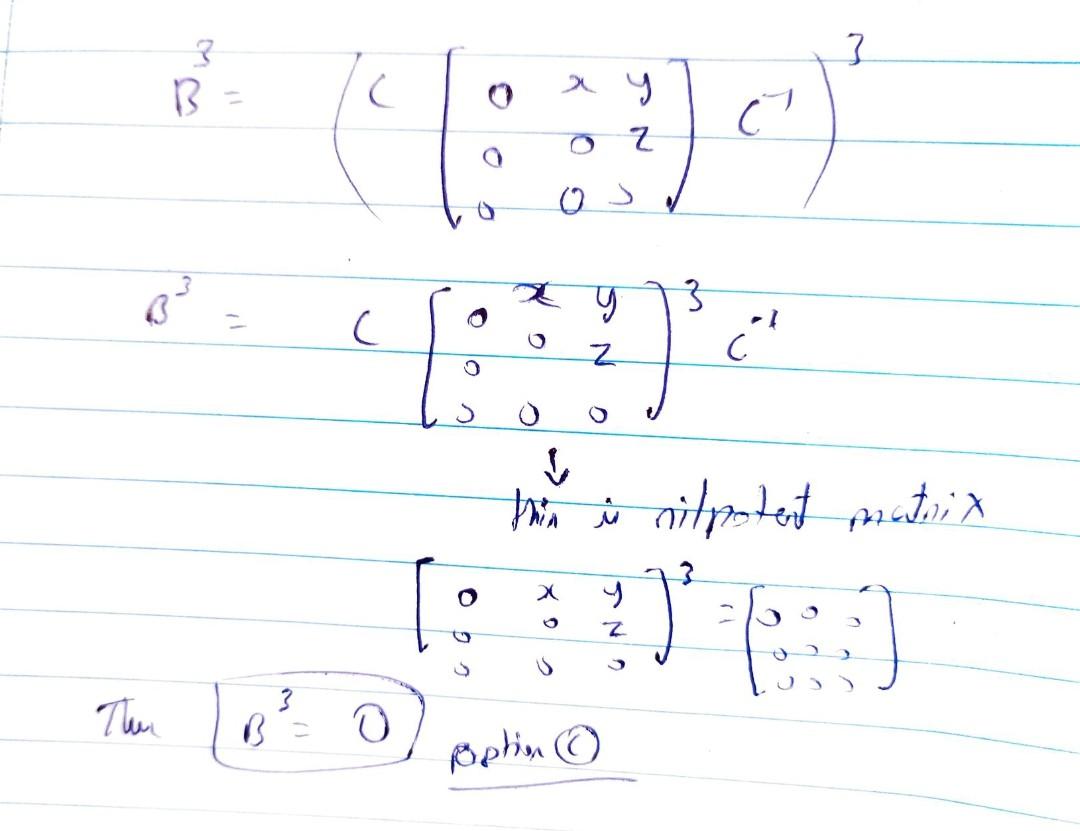 B³ = ( C [ 0 x y
0 0 z
0 0 0 ] C⁻¹ )³
B³ = C [ 0 x y
0 0 z
0 0 0 ]³ C⁻¹
↓
this is nilpotent matrix
[ 0 x y
0 0 z
0 0 0 ]³ = [ 0 0 0
0 0 0
0 0 0 ]
Thus B³ = 0 option ©